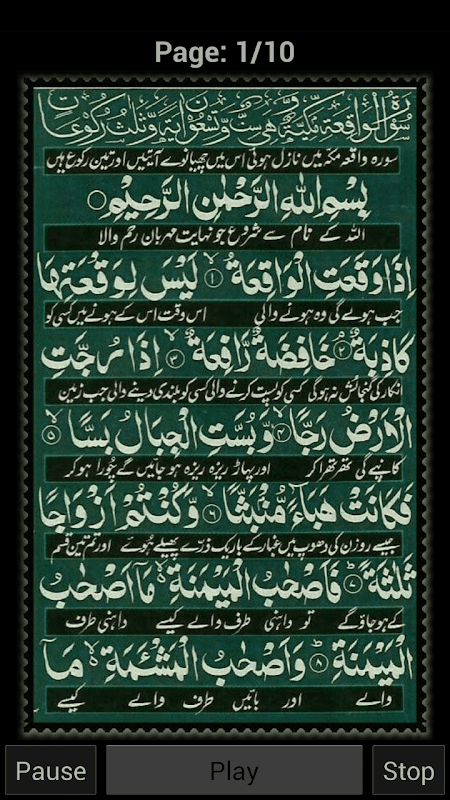 Page: 1/10
سُوْرَةُ الْوَاقِعَةِ مَكِّيَّةٌ وَّهِيَ سِتٌّ وَّتِسْعُوْنَ اٰيَةً وَّثَلٰثُ رُكُوْعَاتٍ
سورہ واقعہ مکہ میں نازل ہوئی اس میں چھیانوے آیتیں اور تین رکوع ہیں
بِسْمِ اللّٰهِ الرَّحْمٰنِ الرَّحِيْمِ
اللہ کے نام سے شروع جو نہایت مہربان رحم والا
اِذَا وَقَعَتِ الْوَاقِعَةُ ۙ﴿۱﴾ لَيْسَ لِوَقْعَتِهَا
جب ہولے گی وہ ہونے والی اس وقت اس کے ہونے میں کسی کو
كَاذِبَةٌ ۘ﴿۲﴾ خَافِضَةٌ رَّافِعَةٌ ۙ﴿۳﴾ اِذَا رُجَّتِ
انکار کی گنجائش نہ ہوگی کسی کو پست کرنے والی کسی کو بلندی دینے والی جب زمین
الْاَرْضُ رَجًّا ۙ﴿۴﴾ وَّبُسَّتِ الْجِبَالُ بَسًّا ۙ﴿۵﴾
کانپے گی تھرتھرا کر اور پہاڑ ریزہ ریزہ ہو جائیں گے چُورا ہو کر
فَكَانَتْ هَبَآءً مُّنْۢبَثًّا ۙ﴿۶﴾ وَّكُنْتُمْ اَزْوَاجًا
جیسے روزن کی دھوپ میں غبار کے باریک ذرّے پھیلے ہُوئے اور تم تین قسم
ثَلٰثَةً ؕ﴿۷﴾ فَاَصْحٰبُ الْمَيْمَنَةِ ۙ مَاۤ اَصْحٰبُ
کے ہوجاؤ گے تو داہنی طرف والے کیسے داہنی طرف
الْمَيْمَنَةِ ؕ﴿۸﴾ وَاَصْحٰبُ الْمَشْـَٔمَةِ ۙ مَاۤ
والے اور بائیں طرف والے کیسے
Pause Play Stop